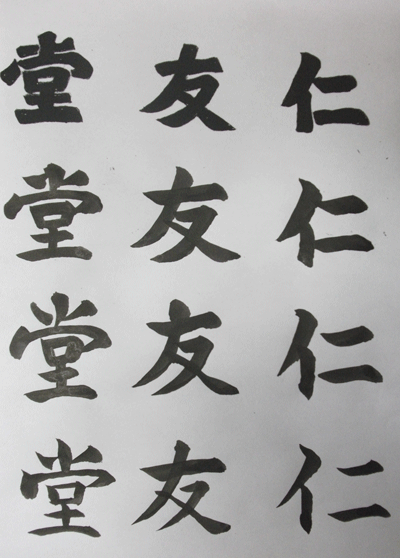 仁友堂
仁友堂
仁友堂
仁友堂